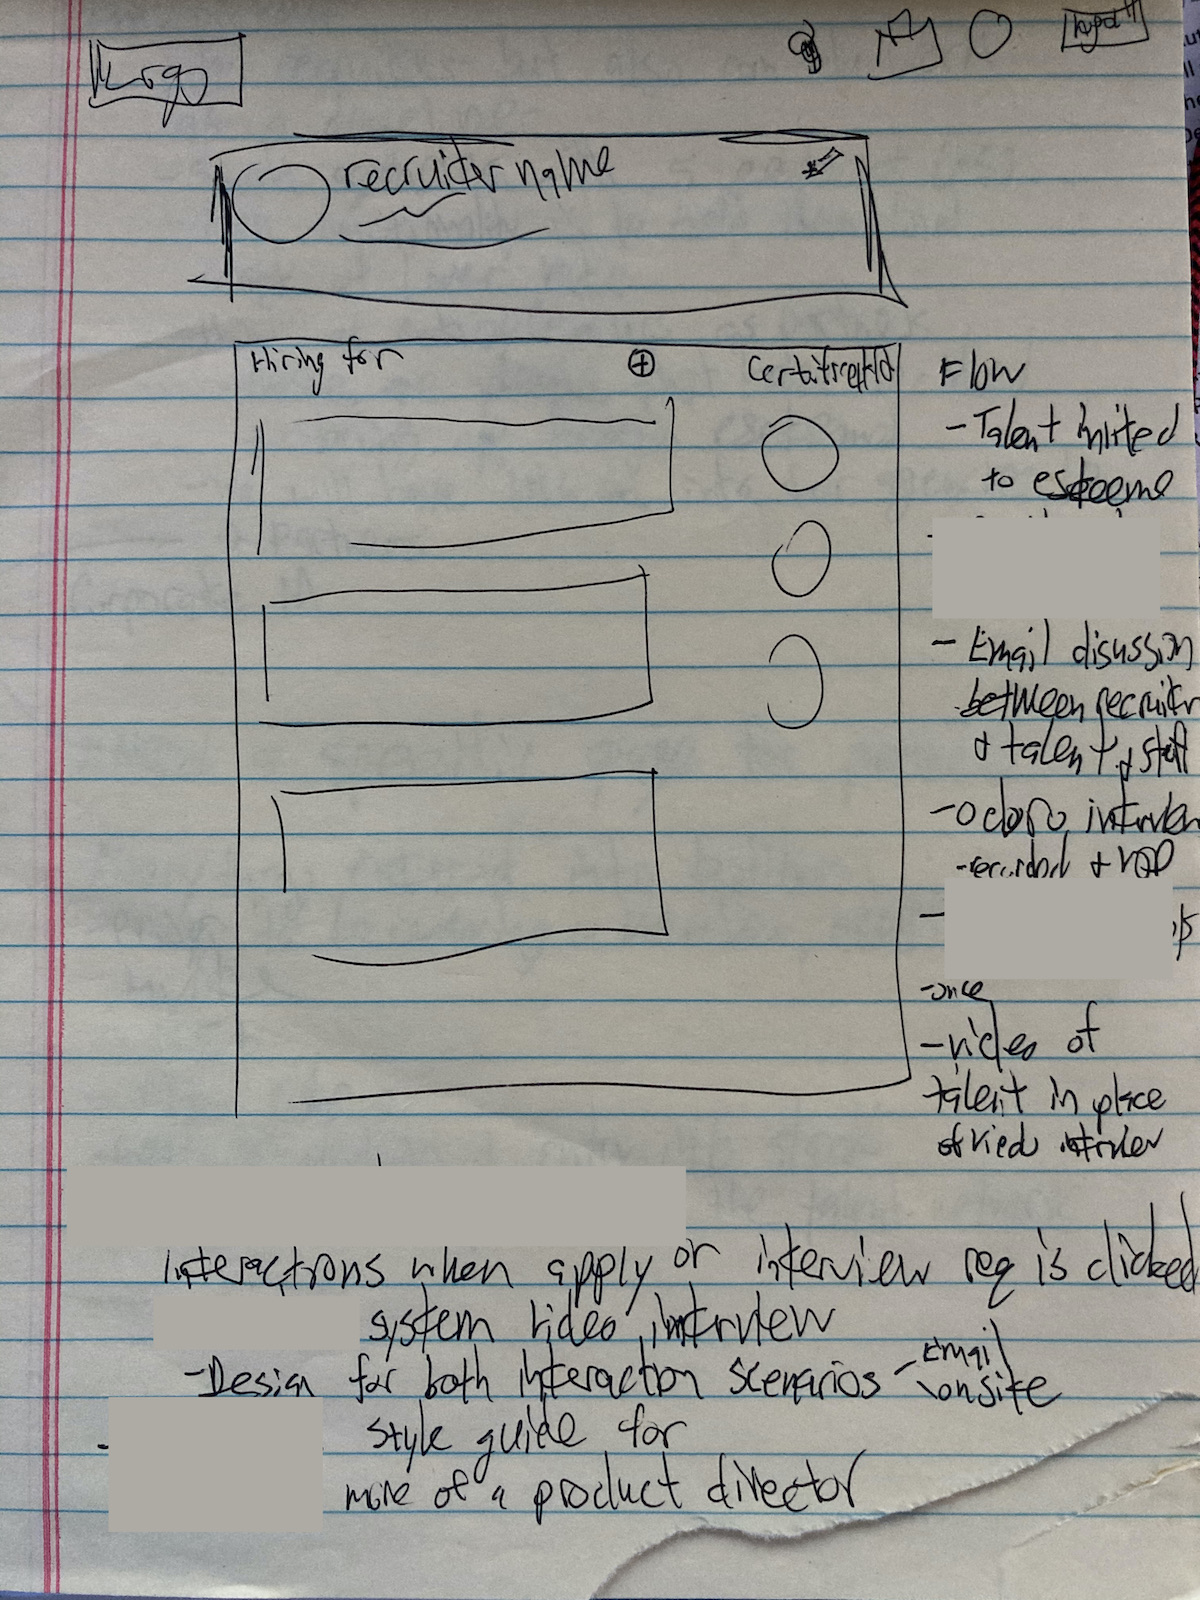 Logo
recruiter name
Hiring for
Flow
- Talent invited
to esteeme
- Email disussion
between recruitr
& talent, & staff
- recorded +
- once
- video of
talent in place
of
Interactions when apply or interview req is clicked
system video
- Design for both interaction scenarios - Email
\ onsite
style guide for
more of a product director